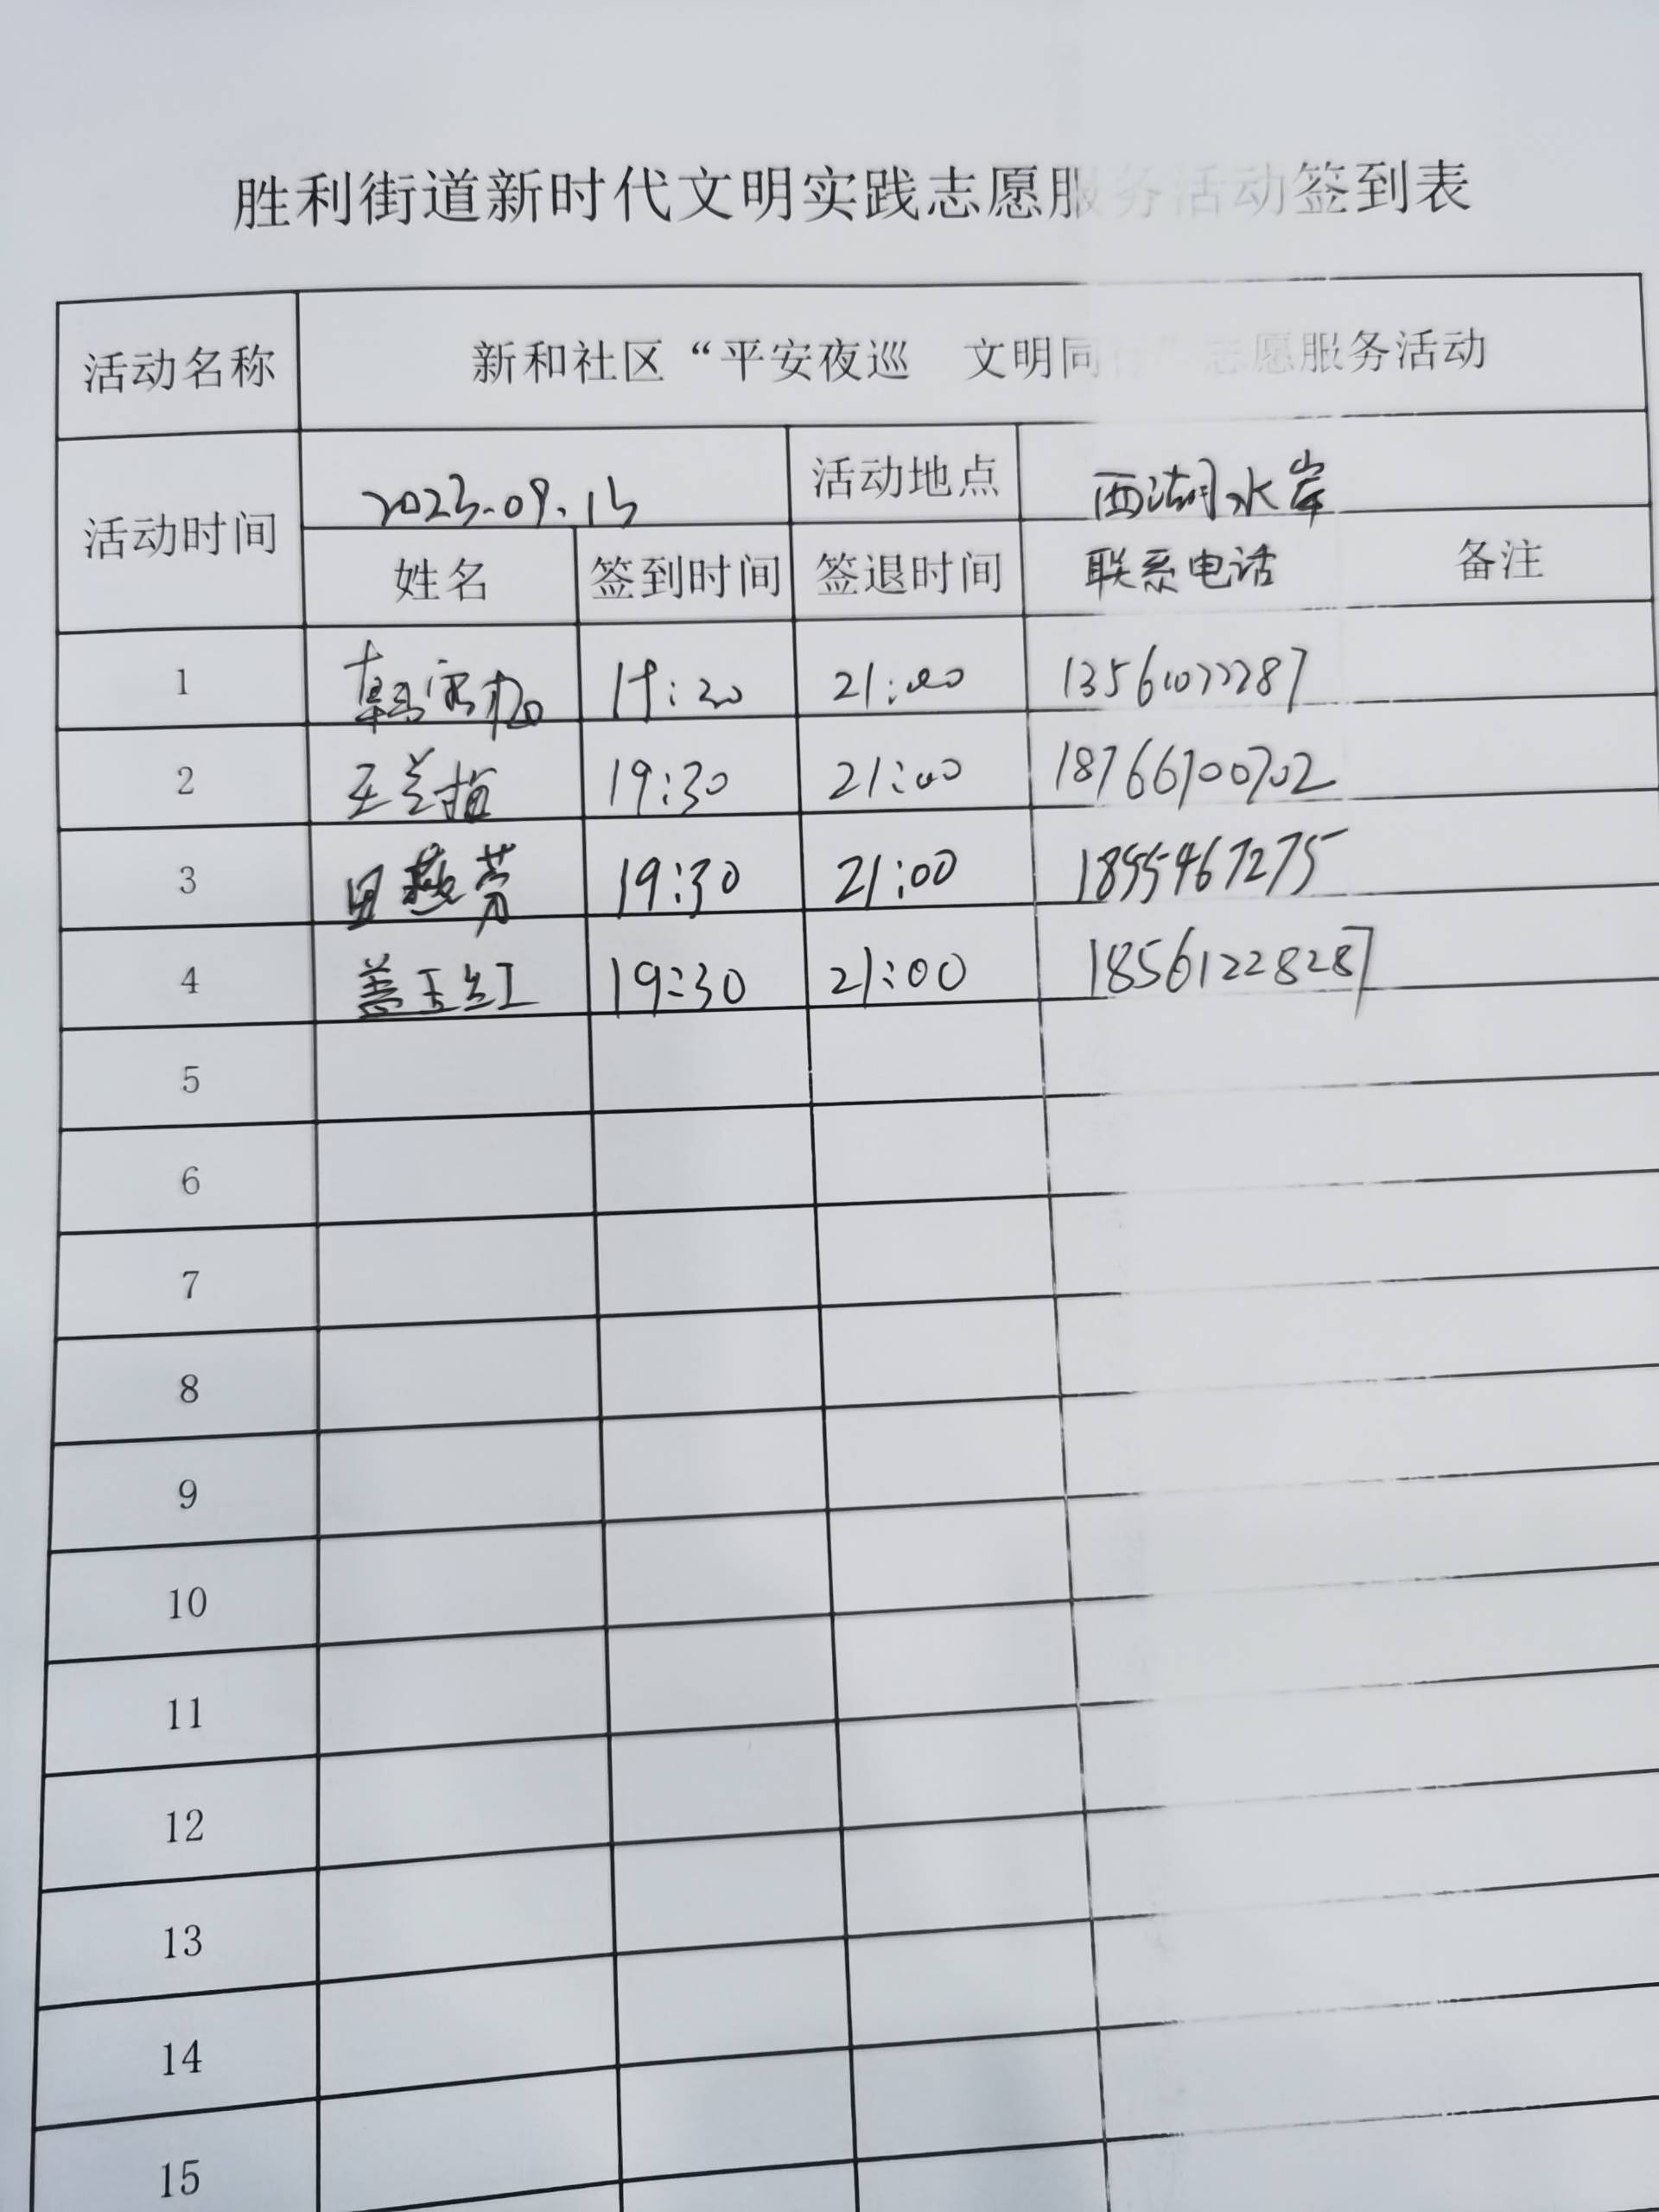 胜利街道新时代文明实践志愿服务活动签到表
活动名称 新和社区“平安夜巡 文明同行”志愿服务活动
活动时间 2023.09.15 活动地点 西湖水岸
姓名 签到时间 签退时间 联系电话 备注
1 19:30 21:00
2 王兰梅 19:30 21:00 18766700702
3 田燕芳 19:30 21:00 1895467275
4 盖玉红 19:30 21:00 18561228287
5
6
7
8
9
10
11
12
13
14
15